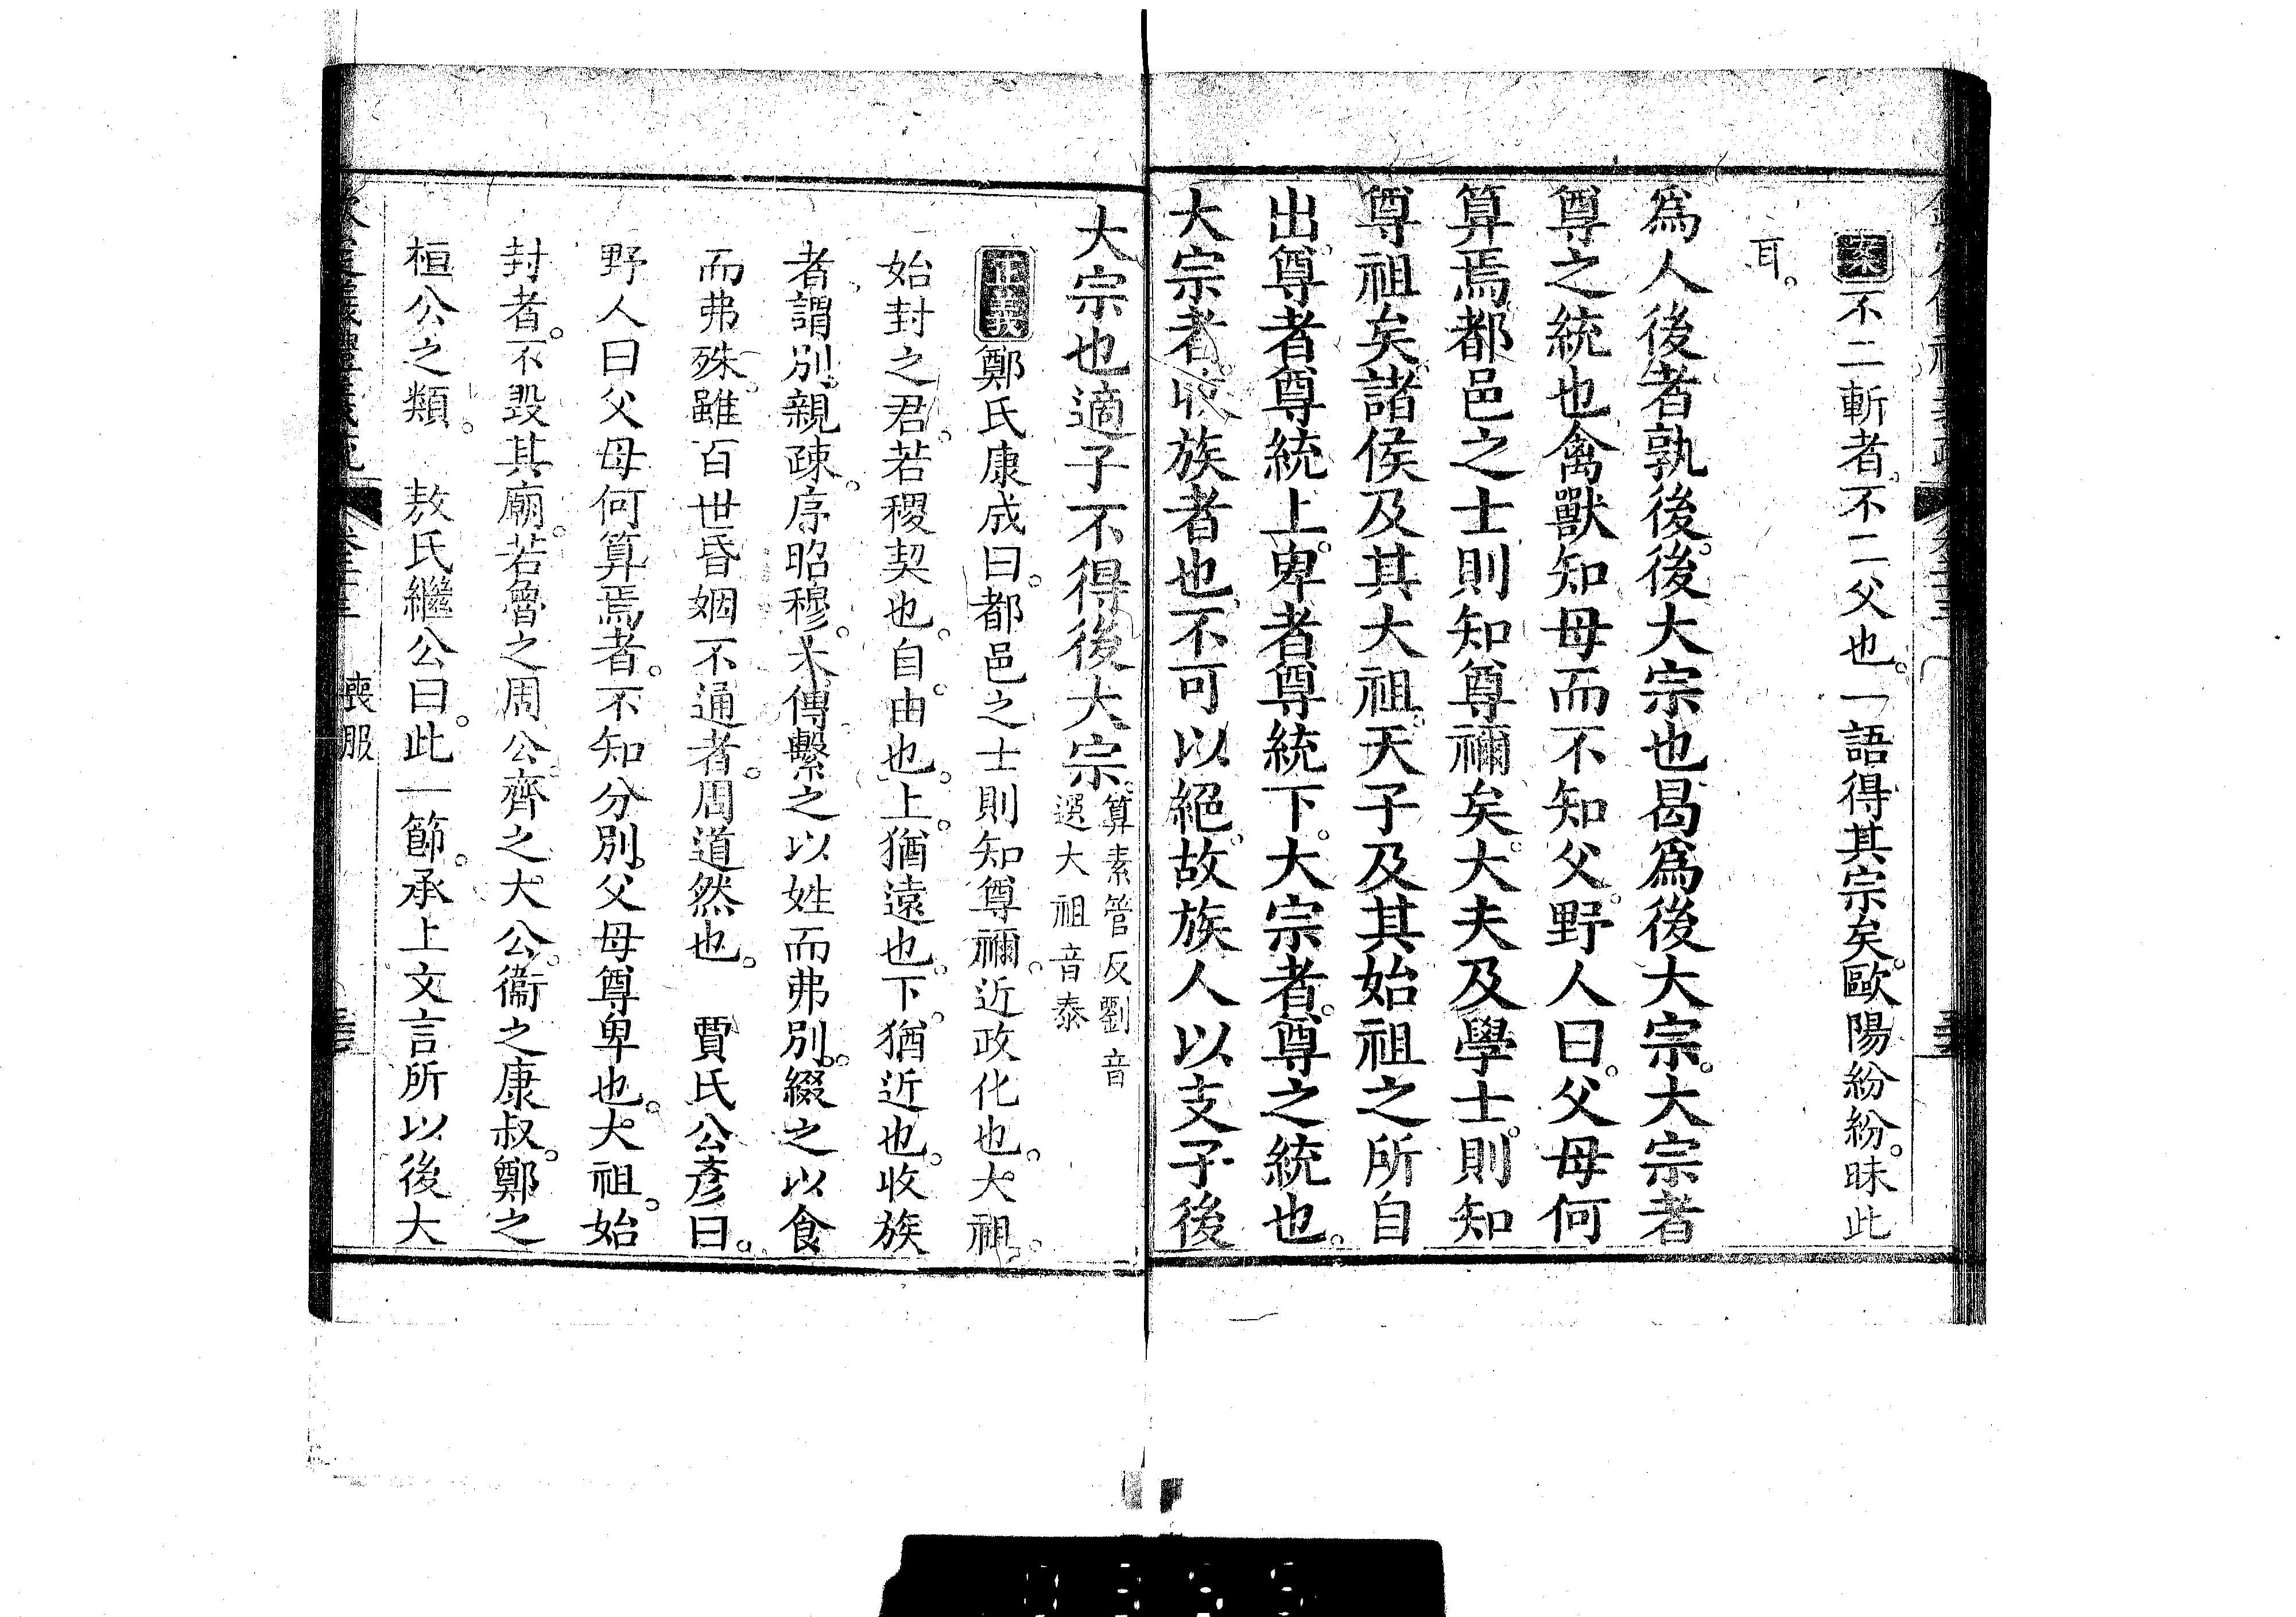 案不二斬者不二父也一語得其宗矣歐陽紛紛昧此
耳
爲人後者孰後後大宗也曷爲後大宗大宗者
尊之統也禽獸知母而不知父野人曰父母何
算焉都邑之士則知尊禰矣大夫及學士則知
尊祖矣諸侯及其大祖天子及其始祖之所自
出尊者尊統上卑者尊統下大宗者尊之統也
大宗者收族者也不可以絕故族人以支子後
大宗也適子不得後大宗算素管反劉音
選大祖音泰
正義鄭氏康成曰都邑之士則知尊禰近政化也大祖
始封之君若稷契也自由也上猶遠也下猶近也收族
者謂別親疎序昭穆大傳繫之以姓而弗別綴之以食
而弗殊雖百世昏姻不通者周道然也　賈氏公彥曰
野人曰父母何算焉者不知分別父母尊卑也大祖始
封者不毀其廟若魯之周公齊之大公衞之康叔鄭之
桓公之類　敖氏繼公曰此一節承上文言所以後大
喪服